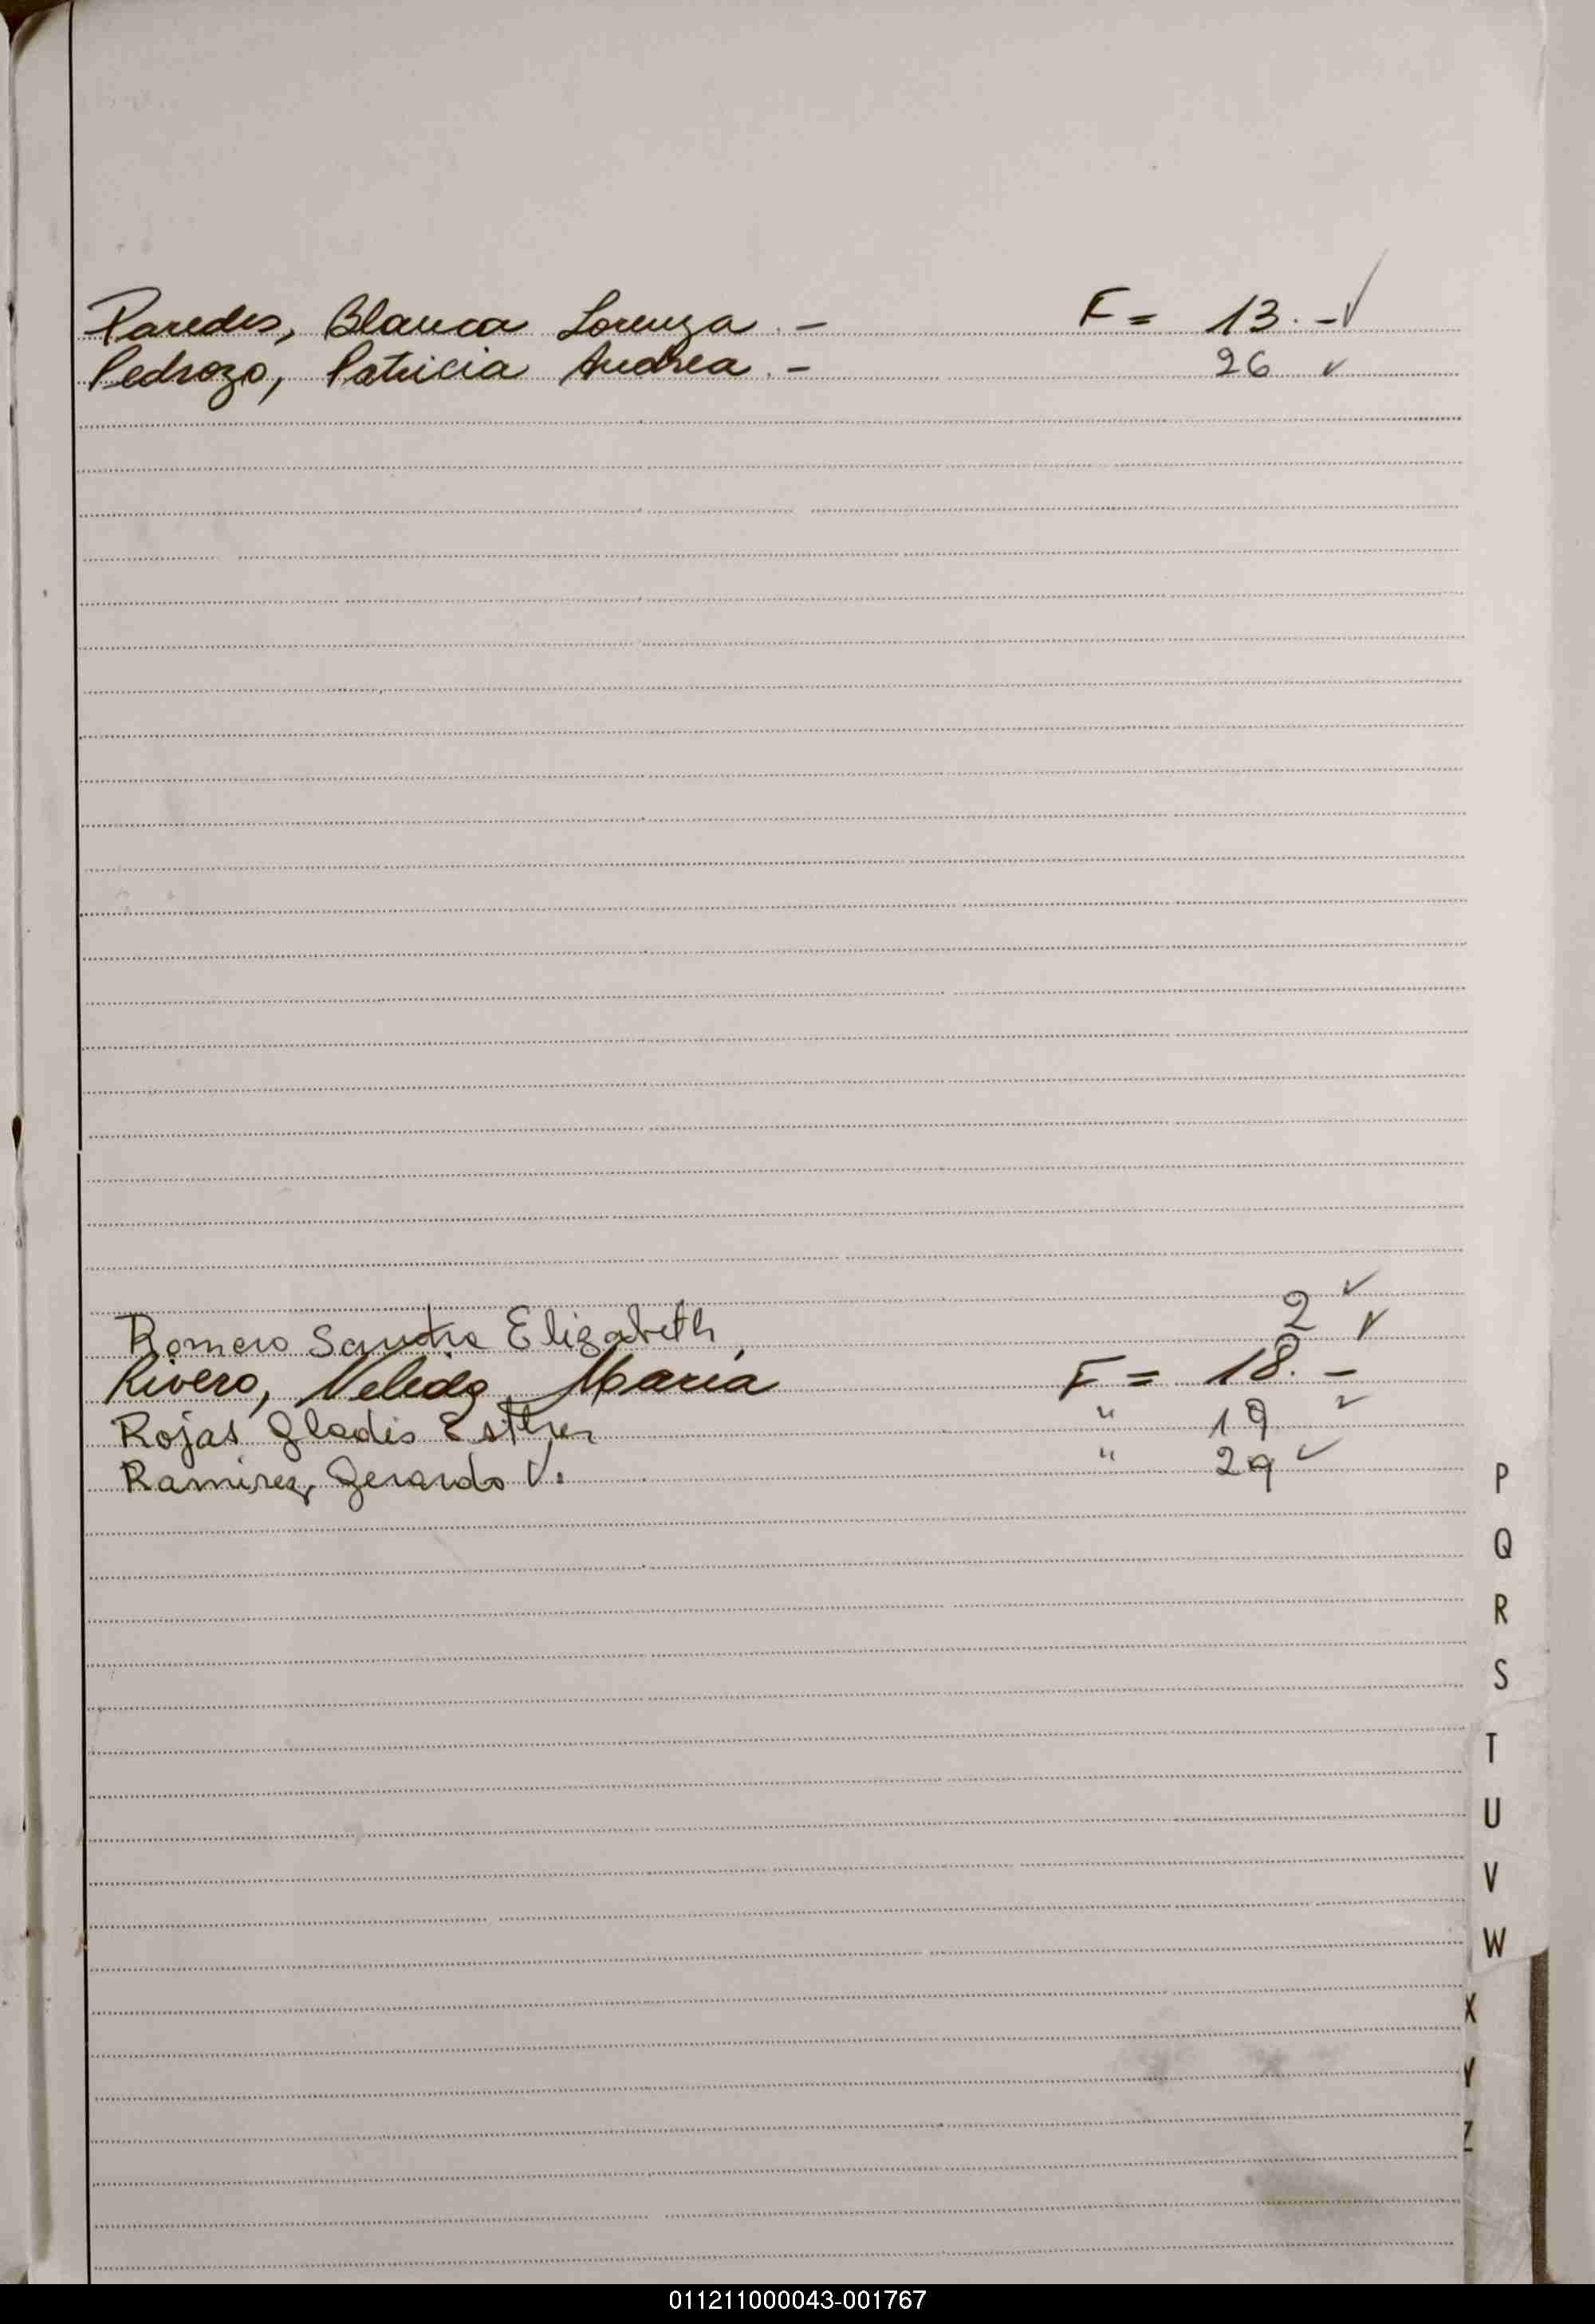 Paredes, Blanca Lorenza.- F= 13.-✓
Pedrozo, Patricia Andrea.- 26 ✓
Romero Sandra Elizabeth 2 ✓
Rivero, Nelida Maria F= 18.- ✓
Rojas Gladis Esther " 19 ✓
Ramirez, Gerardo V. " 29 ✓
P
Q
R
S
T
U
V
W
X
Y
Z
011211000043-001767